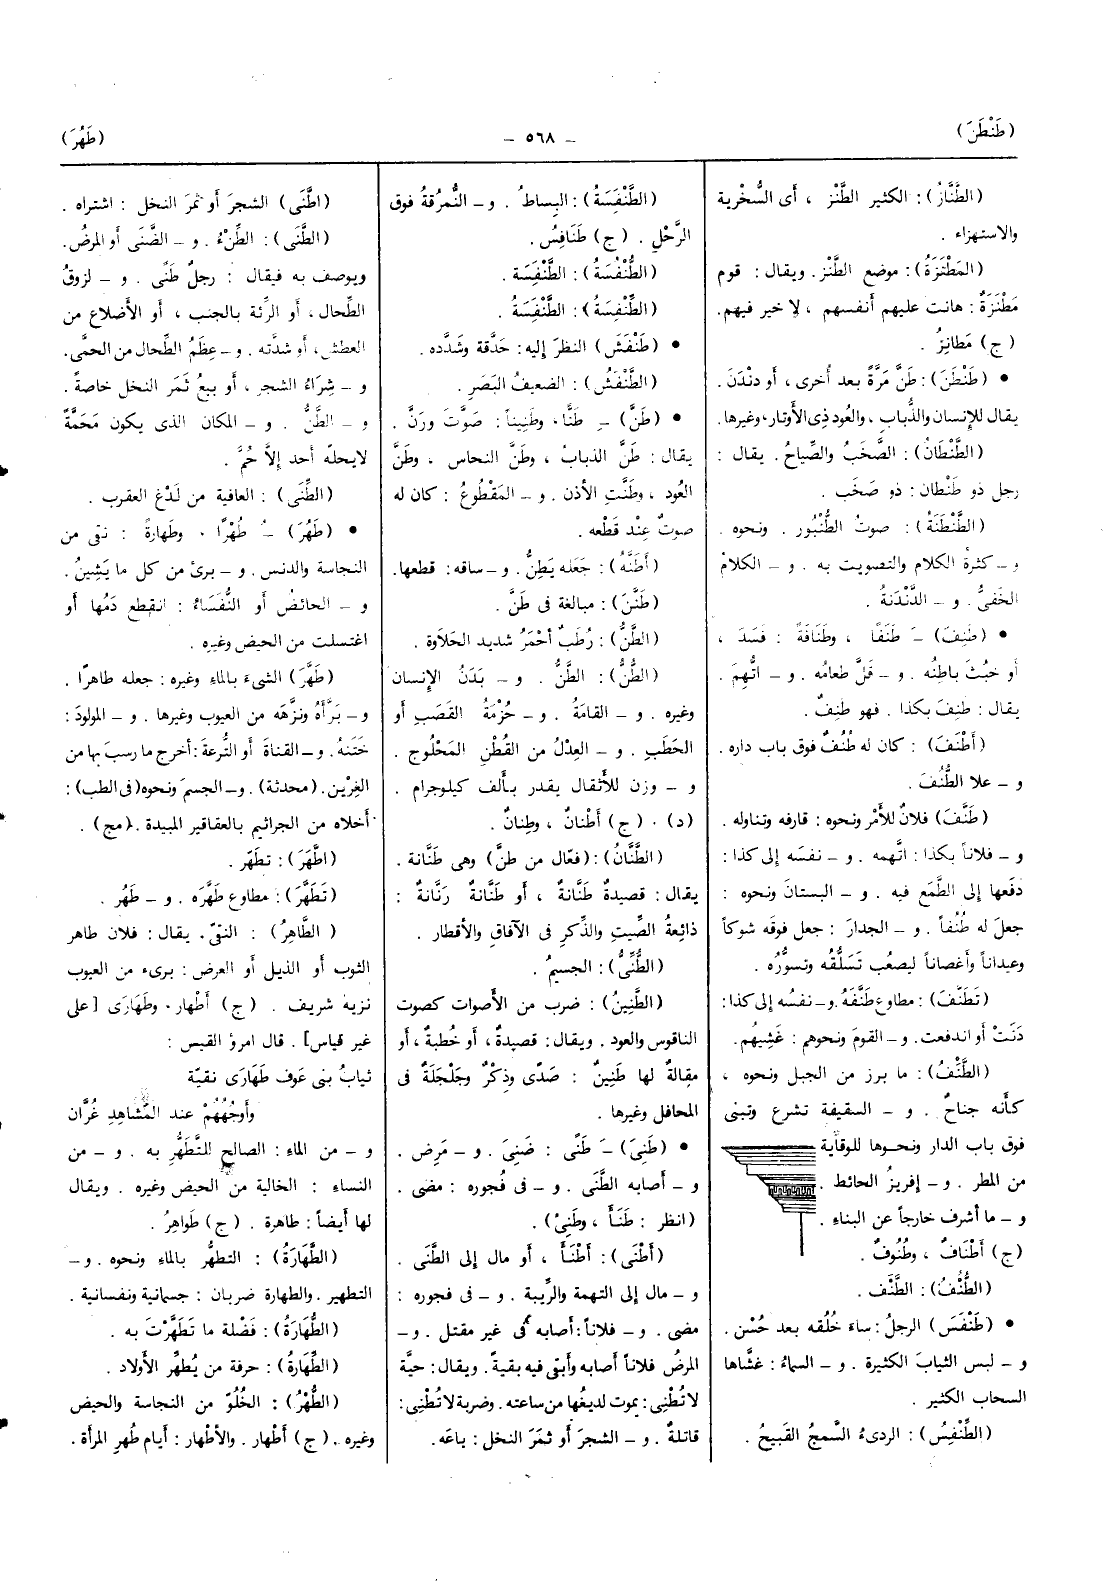 (طَنْطَنَ)
– ٥٦٨ –
(طَهُرَ)
(الطَّنَّازُ): الكثير الطَّنْز ، أى السُّخْرية
والاستهزاء .
(المَطْنَزَةُ): موضع الطَّنْز. ويقال: قوم
مَطْنَزَةٌ: هانت عليهم أنفسهم ، لا خير فيهم.
(ج) مَطانِزُ .
• (طَنْطَنَ): طَنَّ مَرَّةً بعد أخرى ، أو دنْدَنَ .
يقال للإنسان والذُّباب ، والعُود ذِى الأَوتار، وغيرها.
(الطَّنْطَانُ): الصَّخَبُ والصِّياحُ . يقال :
رجل ذو طَنْطان: ذو صَخَب .
(الطَّنْطَنَةُ): صوتُ الطُّنْبُور . ونحوه .
و – كثرةُ الكلام والتصويت به . و – الكلامُ
الخفىُّ . و – الدَّنْدَنةُ .
• (طَنِفَ) – َ طَنَفًا ، وطَنَافَةً : فسَدَ ،
أو خبُثَ باطِنُه . و – قَلَّ طعامُه . و – اتُّهِمَ .
يقال: طَنِفَ بكذا . فهو طَنِفٌ .
(أَطْنَفَ) : كان له طُنُفٌ فوق باب داره .
و – علا الطُّنُفَ .
(طَنَّفَ) فلانٌ للأَمْر ونحوه : قارفه وتناوله .
و – فلاناً بكذا: اتَّهمه . و – نفسَه إلى كذا :
دفَعها إلى الطَّمَع فيه . و – البستانَ ونحوه :
جعلَ له طُنُفاً . و – الجدارَ: جعل فوقه شوكاً
وعيداناً وأغصاناً ليصعُب تَسَلُّقُه وتسوُّرُه .
(تَطَنَّفَ): مطاوع طَنَّفَهُ. و – نفسُه إلى كذا:
دَنَتْ أو اندفعت. و – القومَ ونحوهم: غَشِيَهُم.
(الطَّنْفُ): ما برز من الجبل ونحوه ،
كأَنه جناحٌ . و – السقيفة تشرع وتبنى
فوق باب الدار ونحوها للوقاية
من المطر . و – إفريزُ الحائط .
و – ما أشرف خارجاً عن البناء .
(ج) أَطْنافٌ ، وطُنُوفٌ .
(الطُّنُفُ): الطَّنَّف .
• (طَنْفَسَ) الرجلُ: ساءَ خُلُقه بعد حُسْن .
و – لبس الثيابَ الكثيرة . و – السماءُ: غشَّاها
السحاب الكثير .
(الطِّنْفِسُ): الردىءُ السَّمِجُ القَبيحُ .
(الطَّنْفَسَةُ): البِساطُ . و – النُّمرُقةُ فوق
الرَّحْلِ . (ج) طَنَافِسُ .
(الطُّنْفُسَةُ): الطَّنْفَسَة .
(الطِّنْفِسَةُ): الطَّنْفَسَةُ .
• (طَنْفَشَ) النظرَ إليه: حَدَّقة وشَدَّده .
(الطَّنْفَشُ): الضعيفُ البَصَرِ .
• (طَنَّ) – ِ طَنًّا، وطَنِيناً: صَوَّتَ ورَنَّ .
يقال: طَنَّ الذبابُ ، وطَنَّ النحاس ، وطَنَّ
العُود ، وطَنَّتِ الأذن . و – المَقْطُوعُ : كان له
صوتٌ عِنْد قَطْعه .
(أَطَنَّهُ): جَعَله يَطِنُّ. و – ساقه: قطعها.
(طَنَّنَ): مبالغة فى طَنَّ .
(الطَّنُّ): رُطَبٌ أحْمَرُ شديد الحَلَاوة .
(الطُّنُّ): الطَّنُّ . و – بَدَنُ الإنسان
وغيره . و – القامَةُ . و – حُزْمَةُ القَصَبِ أو
الحَطَبِ . و – العِدْلُ من القُطْنِ المَحْلُوج .
و – وزن للأَثقال يقدر بأَلف كيلوجرام .
(د) . (ج) أَطْنانٌ ، وطِنانٌ .
(الطَّنَّانُ): (فعّال من طنَّ) وهى طَنَّانة .
يقال: قصيدةٌ طَنَّانةٌ ، أو طَنَّانةٌ رَنَّانةٌ :
ذائعةُ الصِّيتِ والذِّكرِ فى الآفاقِ والأقطار .
(الطُّنِّىُّ): الجسيمُ .
(الطَّنِينُ): ضرب من الأصوات كصوت
الناقوس والعود . ويقال: قصيدةٌ، أو خُطبةٌ، أو
مقالةٌ لها طَنِينٌ : صَدًى وذِكْرٌ وجَلْجَلةٌ فى
المحافل وغيرها .
• (طَنِىَ) – َ طَنًى : ضَنِىَ . و – مَرِض .
و – أَصابه الطَّنَى . و – فى فُجوره : مضى .
(انظر : طَنَأَ ، وطَنِئَ) .
(أَطْنَى): أَطْنَأَ ، أو مال إلى الطَّنَى .
و – مال إلى التهمة والرِّيبة . و – فى فجوره :
مضى . و – فلاناً: أصابه فى غير مقتل . و –
المرضُ فلاناً أصابه وأبقى فيه بقيةً . ويقال: حيَّة
لا تُطْنِى: يموت لديغُها من ساعته. وضربة لا تُطْنِى:
قاتلةٌ . و – الشجرَ أو ثمَرَ النخل: باعَه.
(اطَّنَى) الشجرَ أو ثمَرَ النخل : اشتراه .
(الطَّنَى): الطِّنْءُ . و – الضَّنَى أو المرضُ.
ويوصف به فيقال : رجلٌ طَنًى . و – لزوقُ
الطِّحال، أو الرِّئة بالجنب ، أو الأضلاع من
العطش، أو شدَّته . و – عِظَمُ الطِّحال من الحمَّى.
و – شِرَاءُ الشجر ، أو بيعُ ثَمَر النخل خاصةً .
و – الطَّنُّ . و – المكان الذى يكون مَحَمَّةً
لايحلّه أحد إلاَّ حُمَّ .
(الطِّنَى) : العافية من لَدْغ العقرب .
• (طَهُرَ) – ُ طُهْرًا . وطَهارةً : نقى من
النجاسة والدنس . و – برئَ من كل ما يَشِينُ .
و – الحائضُ أو النُّفَسَاءُ : انقطع دَمُها أو
اغتسلت من الحيض وغيره .
(طَهَّرَ) الشىءَ بالماءِ وغيره: جعله طاهرًا .
و – بَرَّأَهُ ونزَّهَه من العيوب وغيرها . و – المولودَ :
خَتَنَهُ . و – القناةَ أو التُّرعةَ: أخرج ما رسبَ بها من
الغِرْيَن . (محدثة) . و – الجسمَ ونحوه (فى الطب) :
أخلاه من الجراثيم بالعقاقير المبيدة . (مج) .
(اطَّهَرَ): تطهّر .
(تَطَهَّرَ): مطاوع طَهَّرَه . و – طَهُر .
(الطَّاهِرُ) : النقىّ. يقال: فلان طاهر
الثوب أو الذيل أو العرض: برىء من العيوب
نزيه شريف . (ج) أَطْهار، وطَهارَى [على
غير قياس] . قال امرؤ القيس :
ثيابُ بنى عَوف طَهَارَى نقيّة
وأَوجُهُهُمْ عند المَشَاهِدِ غُرَّان
و – من الماء: الصالح للتَّطَهُّرِ به . و – من
النساء : الخالية من الحيض وغيره . ويقال
لها أيضاً: طاهرة . (ج) طَواهِرُ .
(الطَّهَارَةُ) : التطهُّر بالماء ونحوه . و –
التطهير . والطهارة ضربان : جسمانية ونفسانية .
(الطُّهَارَةُ): فَضْلة ما تَطَهَّرْتَ به .
(الطِّهَارةُ): حرفة من يُطَهِّر الأَولاد .
(الطُّهْرُ) : الخُلُوّ من النجاسة والحيض
وغيره . (ج) أَطْهار . والأَطْهار: أيام طُهرِ المرأة .